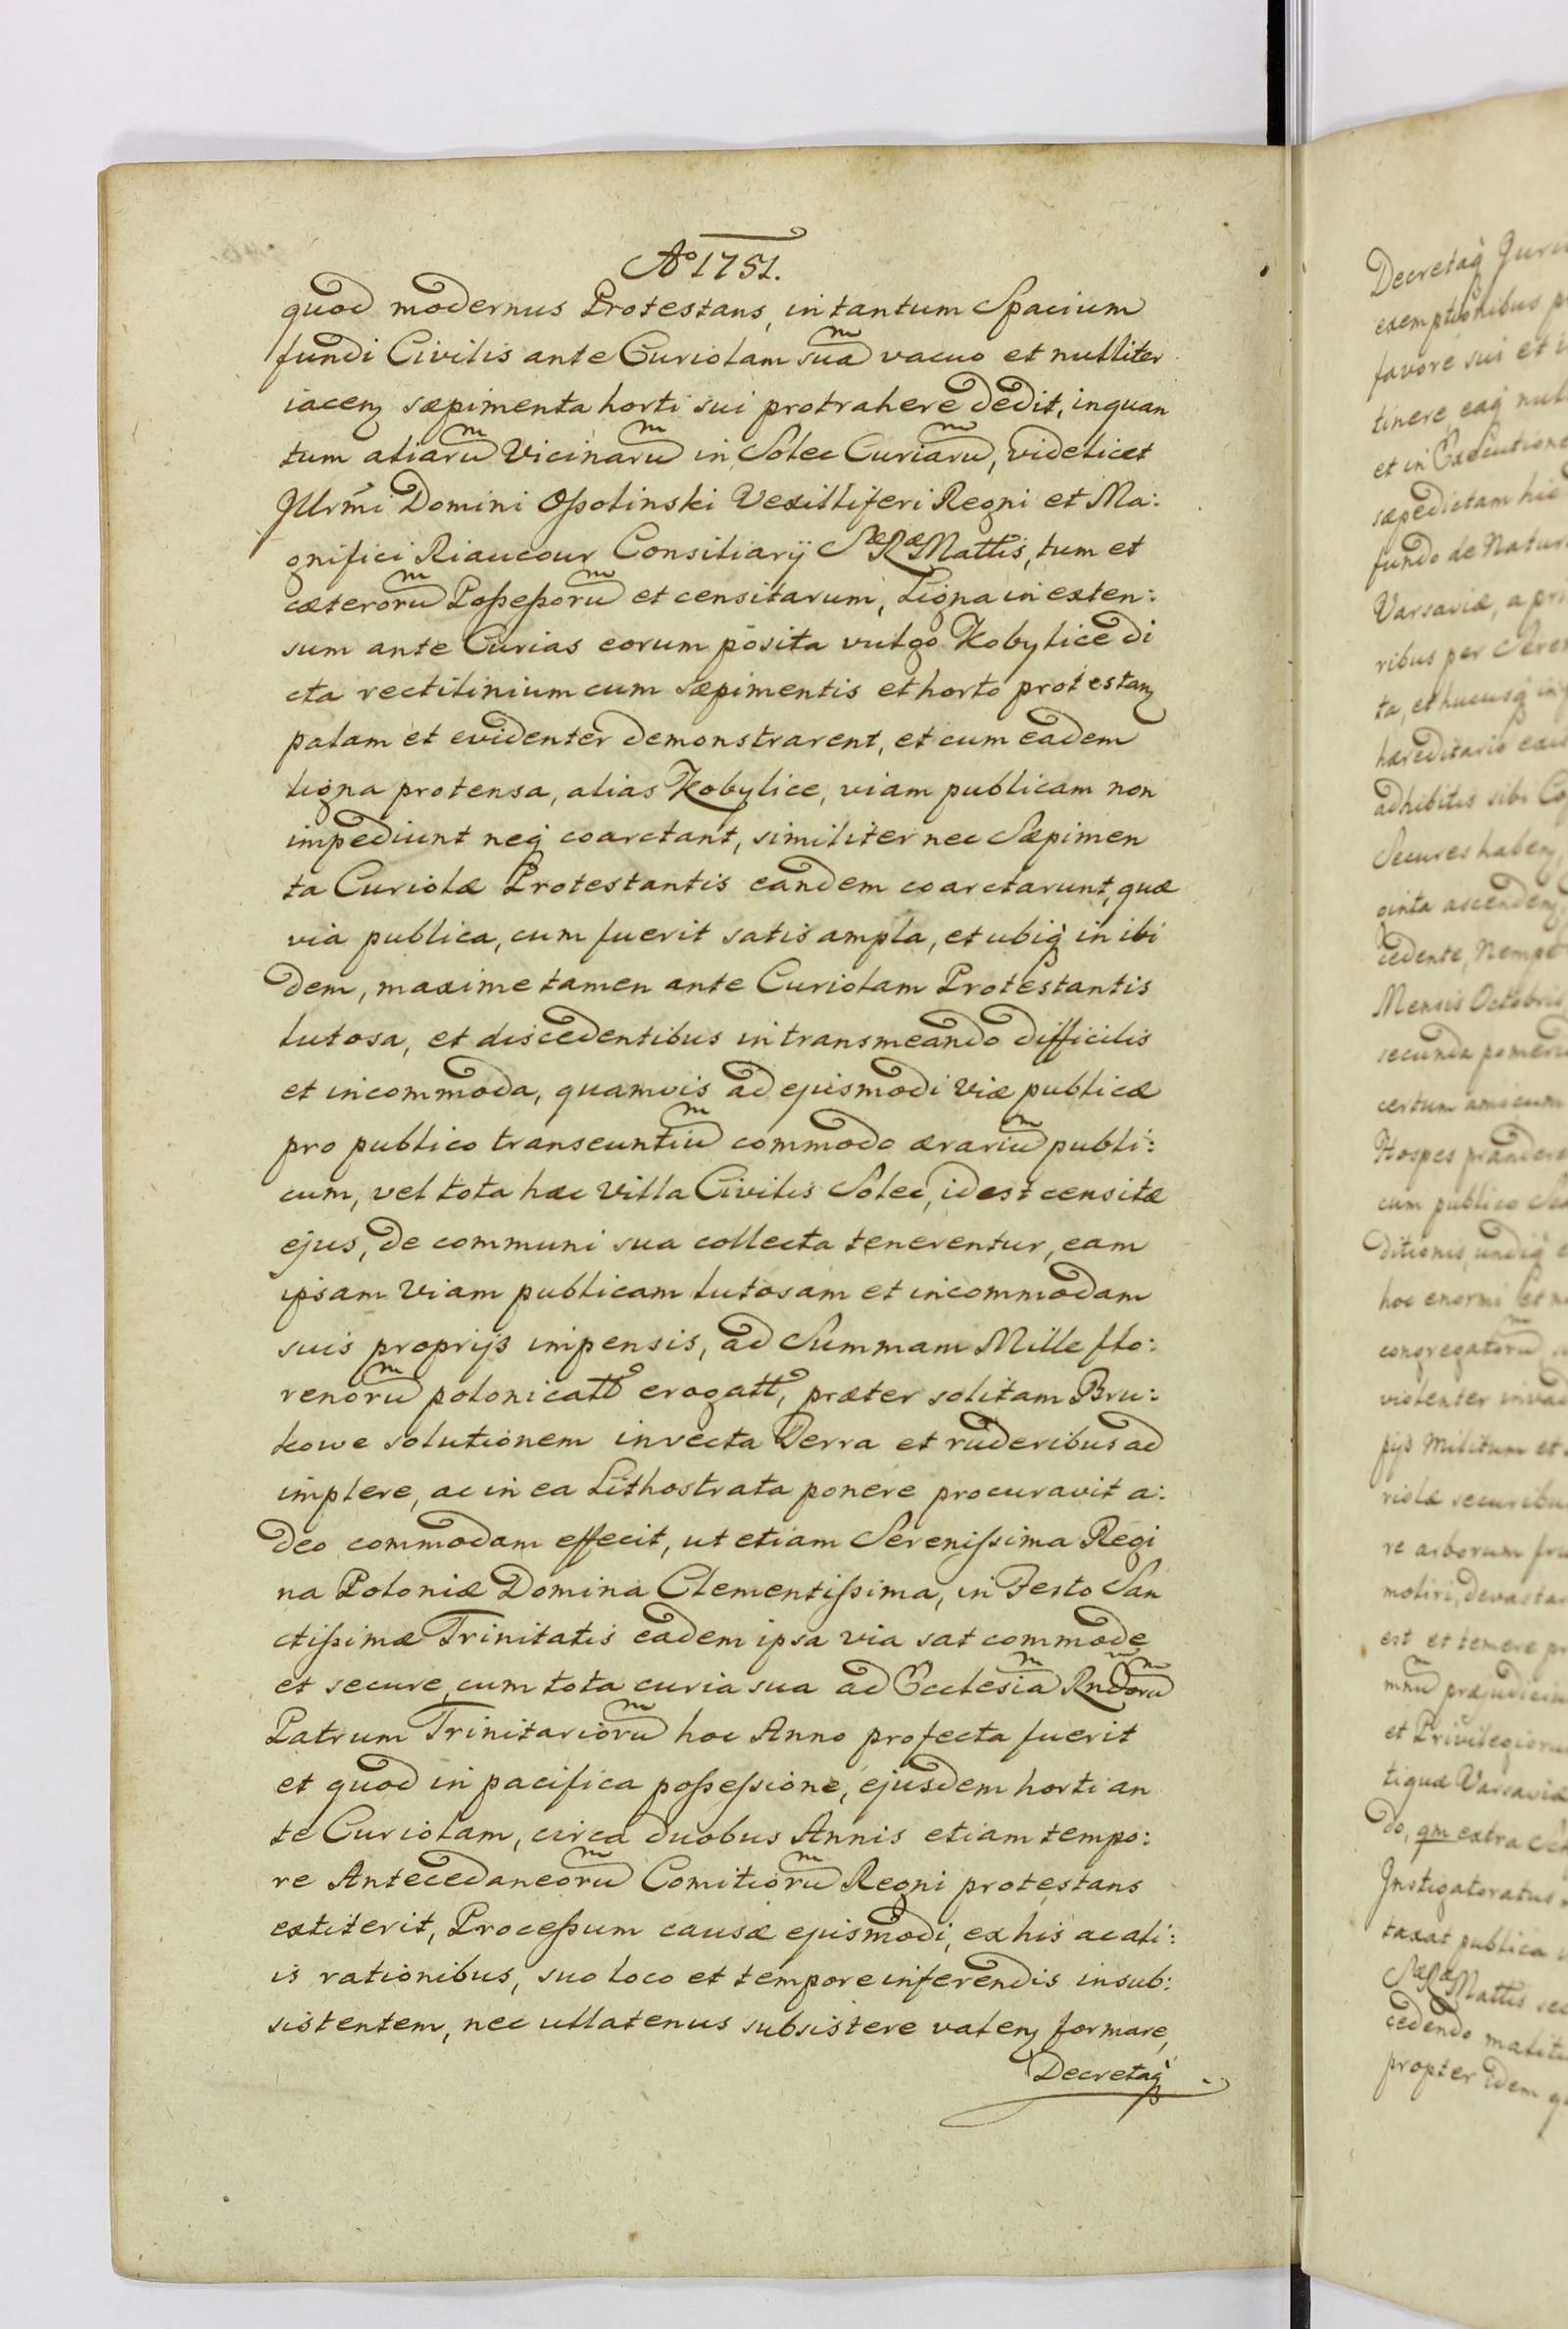 Aº 1751.
quod modernus Protestans, in tantum Spacium
fundi Civilis ante Curiolam suam vacuo et nulliter
iacenz sæpimenta horti sui protrahere dedit, inquan
tum aliarum Vicinarum in Solec Curiarum, videlicet
Jllrmi Domini Oßolinski Vexilliferi Regni et Ma:
gnifici Riaucour Consiliarij Sæ Ræ Mattis, tum et
cæterorum Poßeßorum et censitarum, Ligna in exten:
sum ante Curias eorum posita vulgo Kobylice di
cta rectilinium cum sæpimentis et horto protestanz
palam et evidenter demonstrarent, et cum eadem
ligna protensa, alias Kobylice, viam publicam non
impediunt neq coarctant, similiter nec Sæpimen
ta Curiolæ Protestantis eandem coarctarunt, quæ
via publica, cum fuerit satis ampla, et ubiq in ibi
dem, maxime tamen ante Curiolam Protestantis
lutosa, et discedentibus in transmeando difficilis
et incommoda, quamvis ad ejusmodi Viæ publicæ
pro publico transeuntium commodo ærarium publi:
cum, vel tota hæc Villa Civilis Solec, id est censitæ
ejus, de communi sua collecta tenerentur, eam
ipsam Viam publicam lutosam et incommodam
suis proprijs impensis, ad Summam Mille flo:
renorum polonicatt erogatt, præter solitam Bru:
kowe solutionem invecta Terra et ruderibus ad
implere, ac in ea Lithostrata ponere procuravit a:
deo commodam effecit, ut etiam Sereniſsima Regi
na Poloniæ Domina Clementiſsima, in Festo San
ctiſsimæ Trinitatis eadem ipsa via sat commode
et secure, cum tota curia sua ad Ecclesiam Rndorum
Patrum Trinitariorum hoc Anno profecta fuerit
et quod in pacifica poßeſsione, ejusdem horti an
te Curiolam, circa duobus Annis etiam tempo:
re Antecedaneorum Comitiorum Regni protestans
extiterit, Proceßum causæ ejusmodi, ex his ac ali:
is rationibus, suo loco et tempore inferendis insub:
sistentem, nec ullatenus subsistere valenz formare,
Decretaq
Decretaq Juri
exemptionibus
favore sui et
tinere, eaq
et in Executione
sæpedictam hic
fundo de Natur
Varsaviæ, a
ribus per Seren
ta, et hucusq
hæreditario
adhibitis sibi
Secures habenz
ginta ascendenz
cedente, Nempe
Mensis Octobris
secunda pomeri
certum amicum
Hospes prandere
cum publico
ditionis, undiq
hoc enormi et
congregatorum
violenter invad
pijs Militum et
riolæ securibu
re arborum fru
moliri, devasta
est et temere
præjudiciu
et Privilegioru
tiquæ Varsaviæ
do, qm extra
Jnstigatoratus
taxat publica
Sæ Ræ Mattis
cedendo
propter idem